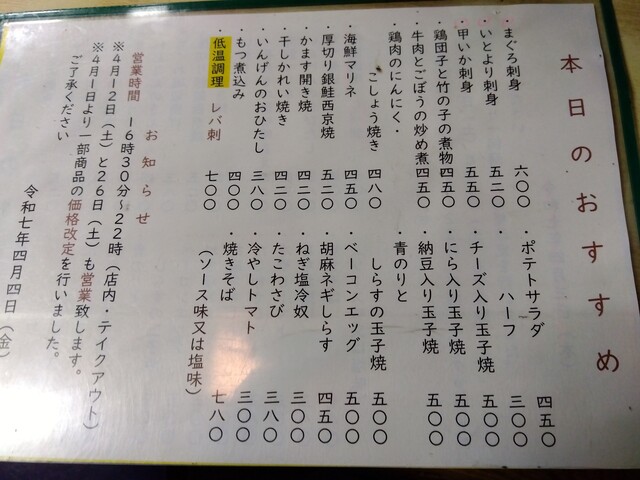 本日のおすすめ
・まぐろ刺身 六〇〇
・いとより刺身 五二〇
・甲いか刺身 五五〇
・鶏団子と竹の子の煮物 四五〇
・牛肉とごぼうの炒め煮 四五〇
・鶏肉のにんにく・
こしょう焼き 四八〇
・海鮮マリネ 四五〇
・厚切り銀鮭西京焼 五二〇
・かます開き焼き 四二〇
・干しかれい焼き 四二〇
・いんげんのおひたし 三八〇
・もつ煮込み 四〇〇
・低温調理 レバ刺 七〇〇
・ポテトサラダ 四五〇
・ハーフ 三〇〇
・チーズ入り玉子焼 五〇〇
・にら入り玉子焼 五〇〇
・納豆入り玉子焼 五〇〇
・青のりと
しらすの玉子焼 五〇〇
・ベーコンエッグ 五〇〇
・胡麻ネギしらす 四五〇
・ねぎ塩冷奴 三〇〇
・たこわさび 三八〇
・冷やしトマト 三〇〇
・焼きそば 七八〇
(ソース味又は塩味)
お知らせ
営業時間 16時30分~22時(店内・テイクアウト)
※4月12日(土)と26日(土)も営業致します。
※4月1日より一部商品の価格改定を行いました。
ご了承ください
令和七年四月四日(金)